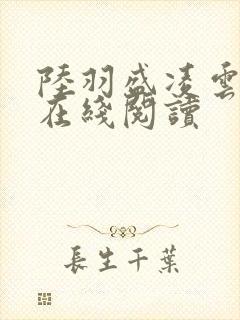 陸羽盛凌雲
在綫閱讀
長生千葉